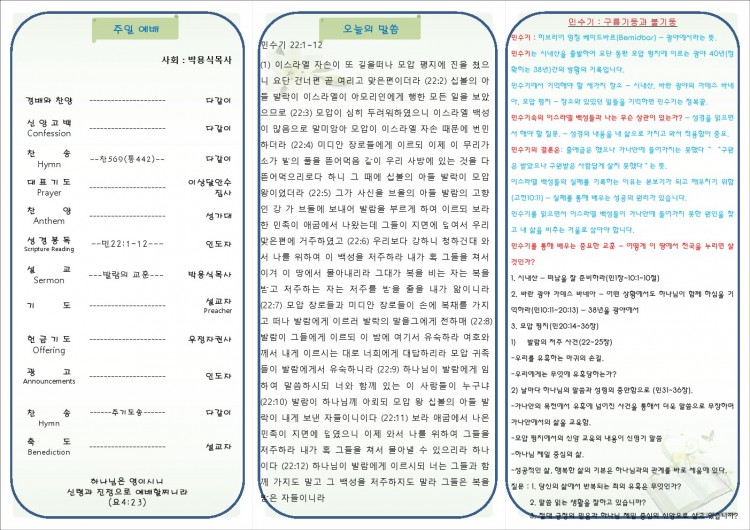 주일 예배
사회 : 박용식목사
경배와 찬양 ------------------ 다같이
신앙고백 ------------------ 다같이
Confession
찬 송 --찬569(통442)-- 다같이
Hymn
대표기도 ------------------ 이상달안수
Prayer 집사
찬 양 ------------------ 성가대
Anthem
성경봉독 --민22:1-12--- 인도자
Scripture Reading
설 교 ---발람의 교훈--- 박용식목사
Sermon
기 도 ------------------ 설교자
Preacher
헌금기도 ------------------ 우정자권사
Offering
광 고 ------------------ 인도자
Announcements
찬 송 ------주기도송------ 다같이
Hymn
축 도 ------------------ 설교자
Benediction
하나님은 영이시니
신령과 진정으로 예배할찌니라
(요4:23)
오늘의 말씀
민수기 22:1-12
(1) 이스라엘 자손이 또 길을떠나 모압 평지에 진을 쳤으
니 요단 건너편 곧 여리고 맞은편이더라 (22:2) 십볼의 아
들 발락이 이스라엘이 아모리인에게 행한 모든 일을 보았
으므로 (22:3) 모압이 심히 두려워하였으니 이스라엘 백성
이 많음으로 말미암아 모압이 이스라엘 자손 때문에 번민
하더라 (22:4) 미디안 장로들에게 이르되 이제 이 무리가
소가 밭의 풀을 뜯어먹음 같이 우리 사방에 있는 것을 다
뜯어먹으리로다 하니 그 때에 십볼의 아들 발락이 모압
왕이었더라 (22:5) 그가 사신을 브올의 아들 발람의 고향
인 강 가 브돌에 보내어 발람을 부르게 하여 이르되 보라
한 민족이 애굽에서 나왔는데 그들이 지면에 덮여서 우리
맞은편에 거주하였고 (22:6) 우리보다 강하니 청하건대 와
서 나를 위하여 이 백성을 저주하라 내가 혹 그들을 쳐서
이겨 이 땅에서 몰아내리라 그대가 복을 비는 자는 복을
받고 저주하는 자는 저주를 받을 줄을 내가 앎이니라
(22:7) 모압 장로들과 미디안 장로들이 손에 복채를 가지
고 떠나 발람에게 이르러 발락의 말을그에게 전하매 (22:8)
발람이 그들에게 이르되 이 밤에 여기서 유숙하라 여호와
께서 내게 이르시는 대로 너희에게 대답하리라 모압 귀족
들이 발람에게서 유숙하니라 (22:9) 하나님이 발람에게 임
하여 말씀하시되 너와 함께 있는 이 사람들이 누구냐
(22:10) 발람이 하나님께 아뢰되 모압 왕 십볼의 아들 발
락이 내게 보낸 자들이니이다 (22:11) 보라 애굽에서 나온
민족이 지면에 덮였으니 이제 와서 나를 위하여 그들을
저주하라 내가 혹 그들을 쳐서 몰아낼 수 있으리라 하나
이다 (22:12) 하나님이 발람에게 이르시되 너는 그들과 함
께 가지도 말고 그 백성을 저주하지도 말라 그들은 복을
받은 자들이니라
민수기 : 구름기둥과 불기둥
민수기 : 히브리어 명칭 베미드바르(Bemidbar) - 광야에서라는 뜻.
민수기는 시내산을 출발하여 요단 동편 모압 평지에 이르는 광야 40년(정
확히는 38년)간의 방황의 기록입니다.
민수기에서 기억해야 할 세가지 장소 - 시내산, 바란 광야의 가데스 바네
아, 모압 평지 - 장소와 있었던 일들을 기억하면 민수기는 정복끝.
민수기속의 이스라엘 백성들과 나는 무슨 상관이 있는가? - 성경을 읽으면
서 해야 할 질문. - 성경의 내용을 내 삶으로 가지고 와서 적용함이 중요.
민수기의 결론은: 출애굽은 했으나 가나안에 들어가지는 못했다 " "구원
은 받았으나 구원받은 사람답게 살지 못했다"는 뜻.
이스라엘 백성들의 실패를 기록하는 이유는 본보기가 되고 깨우치기 위함
(고전10:11) - 실패를 통해 배우는 성공의 원리가 있습니다.
민수기를 읽으면서 이스라엘 백성들이 가나안에 들어가지 못한 원인을 찾
고 내 삶을 비추는 거울로 삼아야 합니다.
민수기를 통해 배우는 중요한 교훈 - 어떻게 이 땅에서 천국을 누리면 살
것인가?
1. 시내산 - 떠남을 잘 준비하라(민1장-10:1-10절)
2. 바란 광야 가데스 바네아 - 어떤 상황에서도 하나님이 함께 하심을 기
억하라(민10:11-20:13) - 38년을 광야에서
3. 모압 평지(민20:14-36장)
1) 발람의 저주 사건(22-25장)
-우리를 유혹하는 마귀의 손길.
-우리에게는 무엇에 유혹당하는가?
2) 날마다 하나님의 말씀과 성령의 충만함으로 (민31-36장).
-가나안의 목전에서 유혹에 넘어진 사건을 통해서 더욱 말씀으로 무장하며
가나안에서의 삶을 교육함.
-모압 평지에서의 신앙 교육의 내용이 신명기 말씀
-하나님 제일 중심의 삶.
-성공적인 삶, 행복한 삶의 기본은 하나님과의 관계를 바로 세움에 있다.
질문 : 1. 당신의 삶에서 반복되는 죄의 유혹은 무엇인가?
2. 말씀 읽는 생활을 잘하고 있습니까?
3. 절대 긍정의 믿음과 하나님 제일 중심의 신앙으로 살고 있습니까?